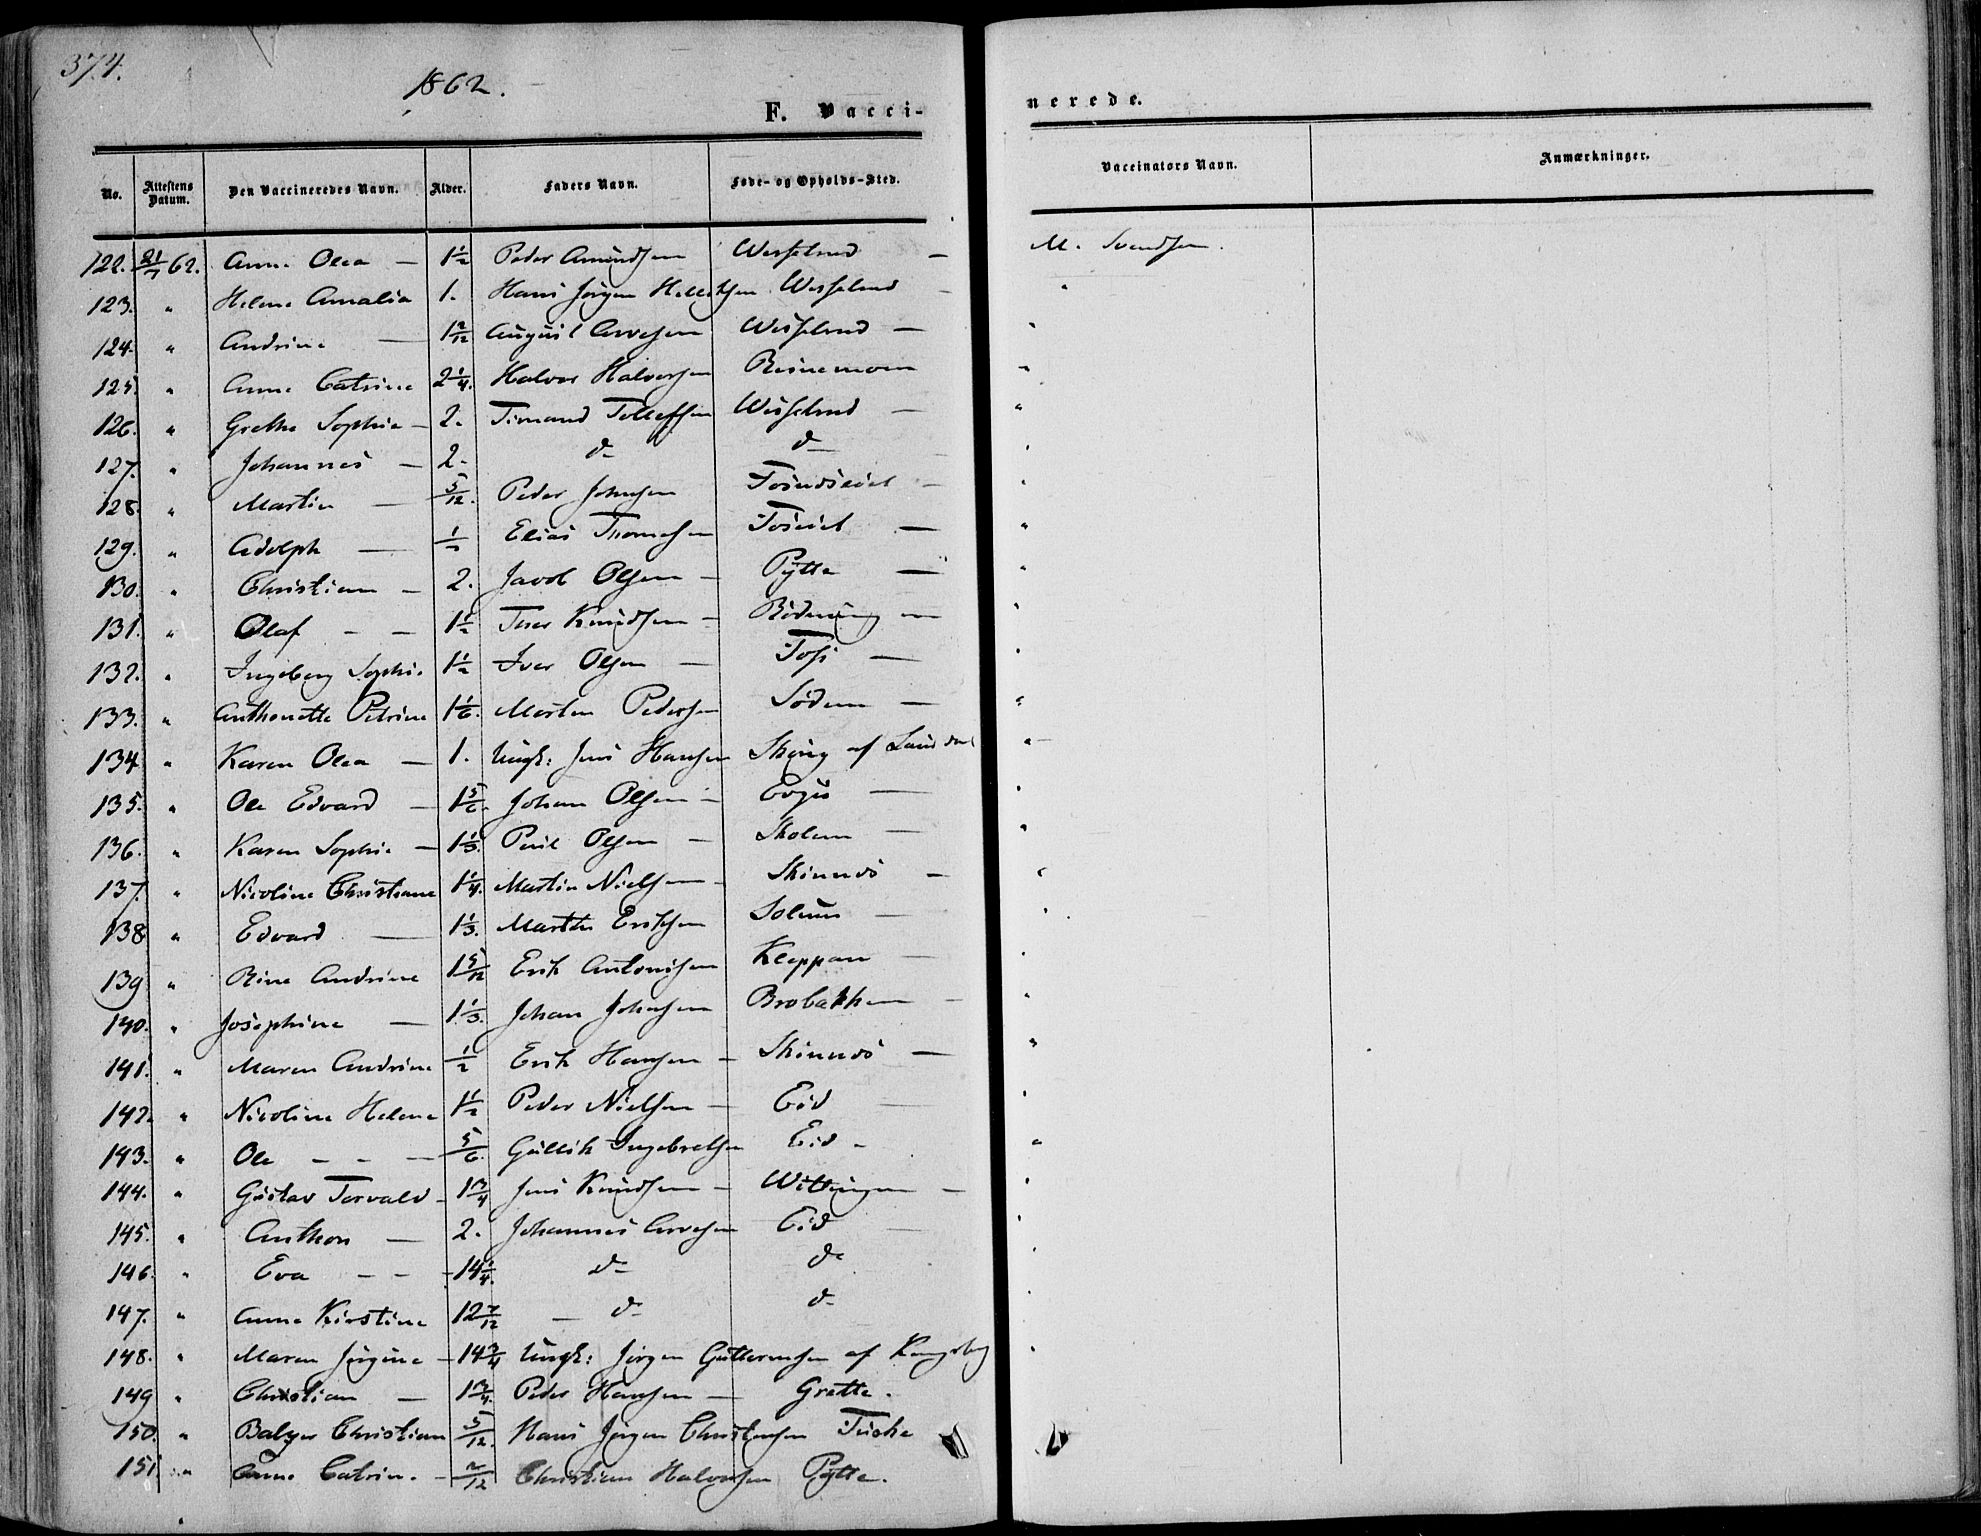 374.
1862.
F. Vacci-
nerede.
No. Attestens Datum. Den Vaccineredes Navn. Alder. Faders Navn. Føde- og Opholds-Sted. Vaccinators Navn. Anmærkninger.
122. 21/7 62. Anne Olea — 1 1/2 Peder Amundsen — M. Svendsen.
123. " Helene Amalia 1. Hans Jørgen "
124. " Andrine — 1 2/12 August Arvesen — "
125. " Anne Catrine 2 1/4. Halvor Halvorsen "
126. " Grethe Sophie — 2. Timand Tollefsen — "
127. " Johannes — 2. d— d— "
128. " Martin — 5/12. Peder Johnsen — "
129. " Adolph — 1/2 Elias Thomesen — "
130. " Christian — 2. Jacob Olsen — Pytte — "
131. " Olaf — — 1 1/2 Knudsen — "
132. " Ingeborg Sophie 1 1/2 Iver Olsen — — "
133. " Anthonette Petrine 1 1/6. Morten Pedersen — "
134. " Karen Olea — 1. Ungk: Jens Hansen af "
135. " Ole Edvard — 1 5/6. Johan Olsen — — "
136. " Karen Sophie — 1 1/3. Paul Olsen — Skolem — "
137. " Nicoline Christiane 1 1/4. Martin Nielsen — Skinnes — "
138 " Edvard — 1 1/3. Eriksen Solum — "
139 " Andrine 1 5/12 Erik Antonisen Kleppan — "
140. " Josephine — 1 1/3. Johan Johnsen Brobakken — "
141. " Maren Andrine 1/2 Erik Hansen — Skinnes — "
142. " Nicoline Helene 1 1/2 Peder Nielsen — Eid — "
143. " Ole — — — 5/6. Gullik Ingebretsen Eid — "
144. " Gustav Torvald — 1 3/4 Jens Knudsen — Wittingen — "
145. " Anthon — 2. Johannes Arvesen Eid — "
146. " Eva — — — 14 1/4. d— d— "
147. " Anne Kirstine 12 7/12 — d— d— "
148. " Maren Jørgine — 14 3/4 Ungk: Jørgen Guttormsen af Kongsberg "
149 " Christian — 1 3/4. Peder Hansen — Grette. "
150. " Balzer Christian 5/12. Hans Jørgen Christensen "
151. " Anne Catrine — 2/12 Christian Halvorsen Pytte.